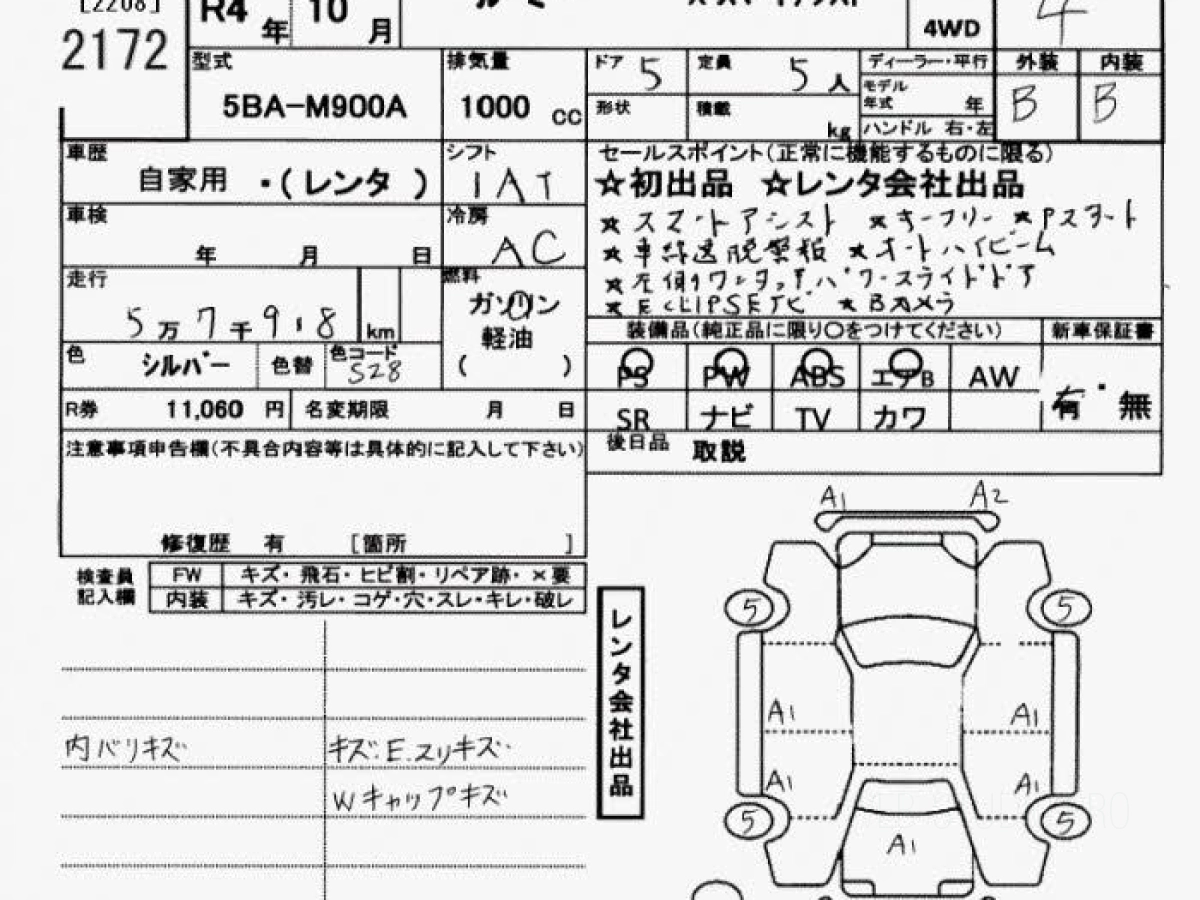 [2208]
2172
R4 年 10 月
4WD
4
型式
5BA-M900A
排気量
1000 cc
ドア 5
定員 5 人
形状
積載 kg
ディーラー・平行
モデル年式 年
ハンドル 右・左
外装 内装
B B
車歴
自家用 ・(レンタ )
シフト
IAT
車検
年 月 日
冷房
AC
走行
5万7千918 km
燃料
ガソリン
軽油
( )
色 シルバー 色替 色コード S28
R券 11,060 円 名変期限 月 日
セールスポイント(正常に機能するものに限る)
☆初出品 ☆レンタ会社出品
★スマートアシスト ★キーフリー ★Pスタート
★車線逸脱警報 ★オートハイビーム
★左側ワンタッチパワースライドドア
★ECLIPSETC ★BAメラ
装備品(純正品に限り○をつけてください) 新車保証書
PS PW ABS エアB AW
有・無
SR ナビ TV カワ
後日品 取説
注意事項申告欄(不具合内容等は具体的に記入して下さい)
修復歴 有 [箇所 ]
検査員記入欄
FW キズ・飛石・ヒビ割・リペア跡・×要
内装 キズ・汚レ・コゲ・穴・スレ・キレ・破レ
内バリキズ
キズ:E.スリキズ
Wキャップキズ
レンタ会社出品
A1 A2
5 5
A1 A1
A1 A1
5 5
A1